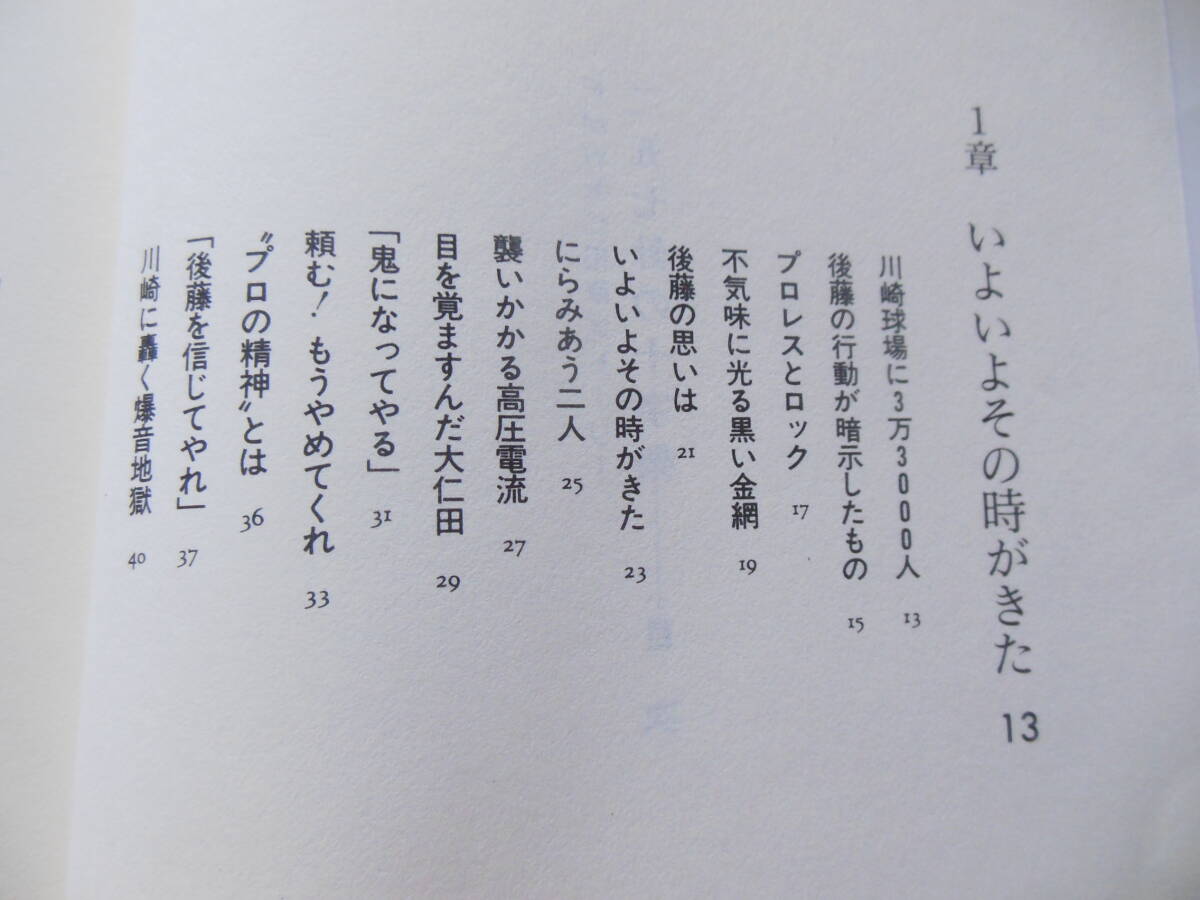 1章 いよいよその時がきた 13
川崎球場に3万3000人 13
後藤の行動が暗示したもの 15
プロレスとロック 17
不気味に光る黒い金網 19
後藤の思いは 21
いよいよその時がきた 23
にらみあう二人 25
襲いかかる高圧電流 27
目を覚ますんだ大仁田 29
「鬼になってやる」 31
頼む！もうやめてくれ 33
〝プロの精神〟とは 36
「後藤を信じてやれ」 37
川崎に轟く爆音地獄 40